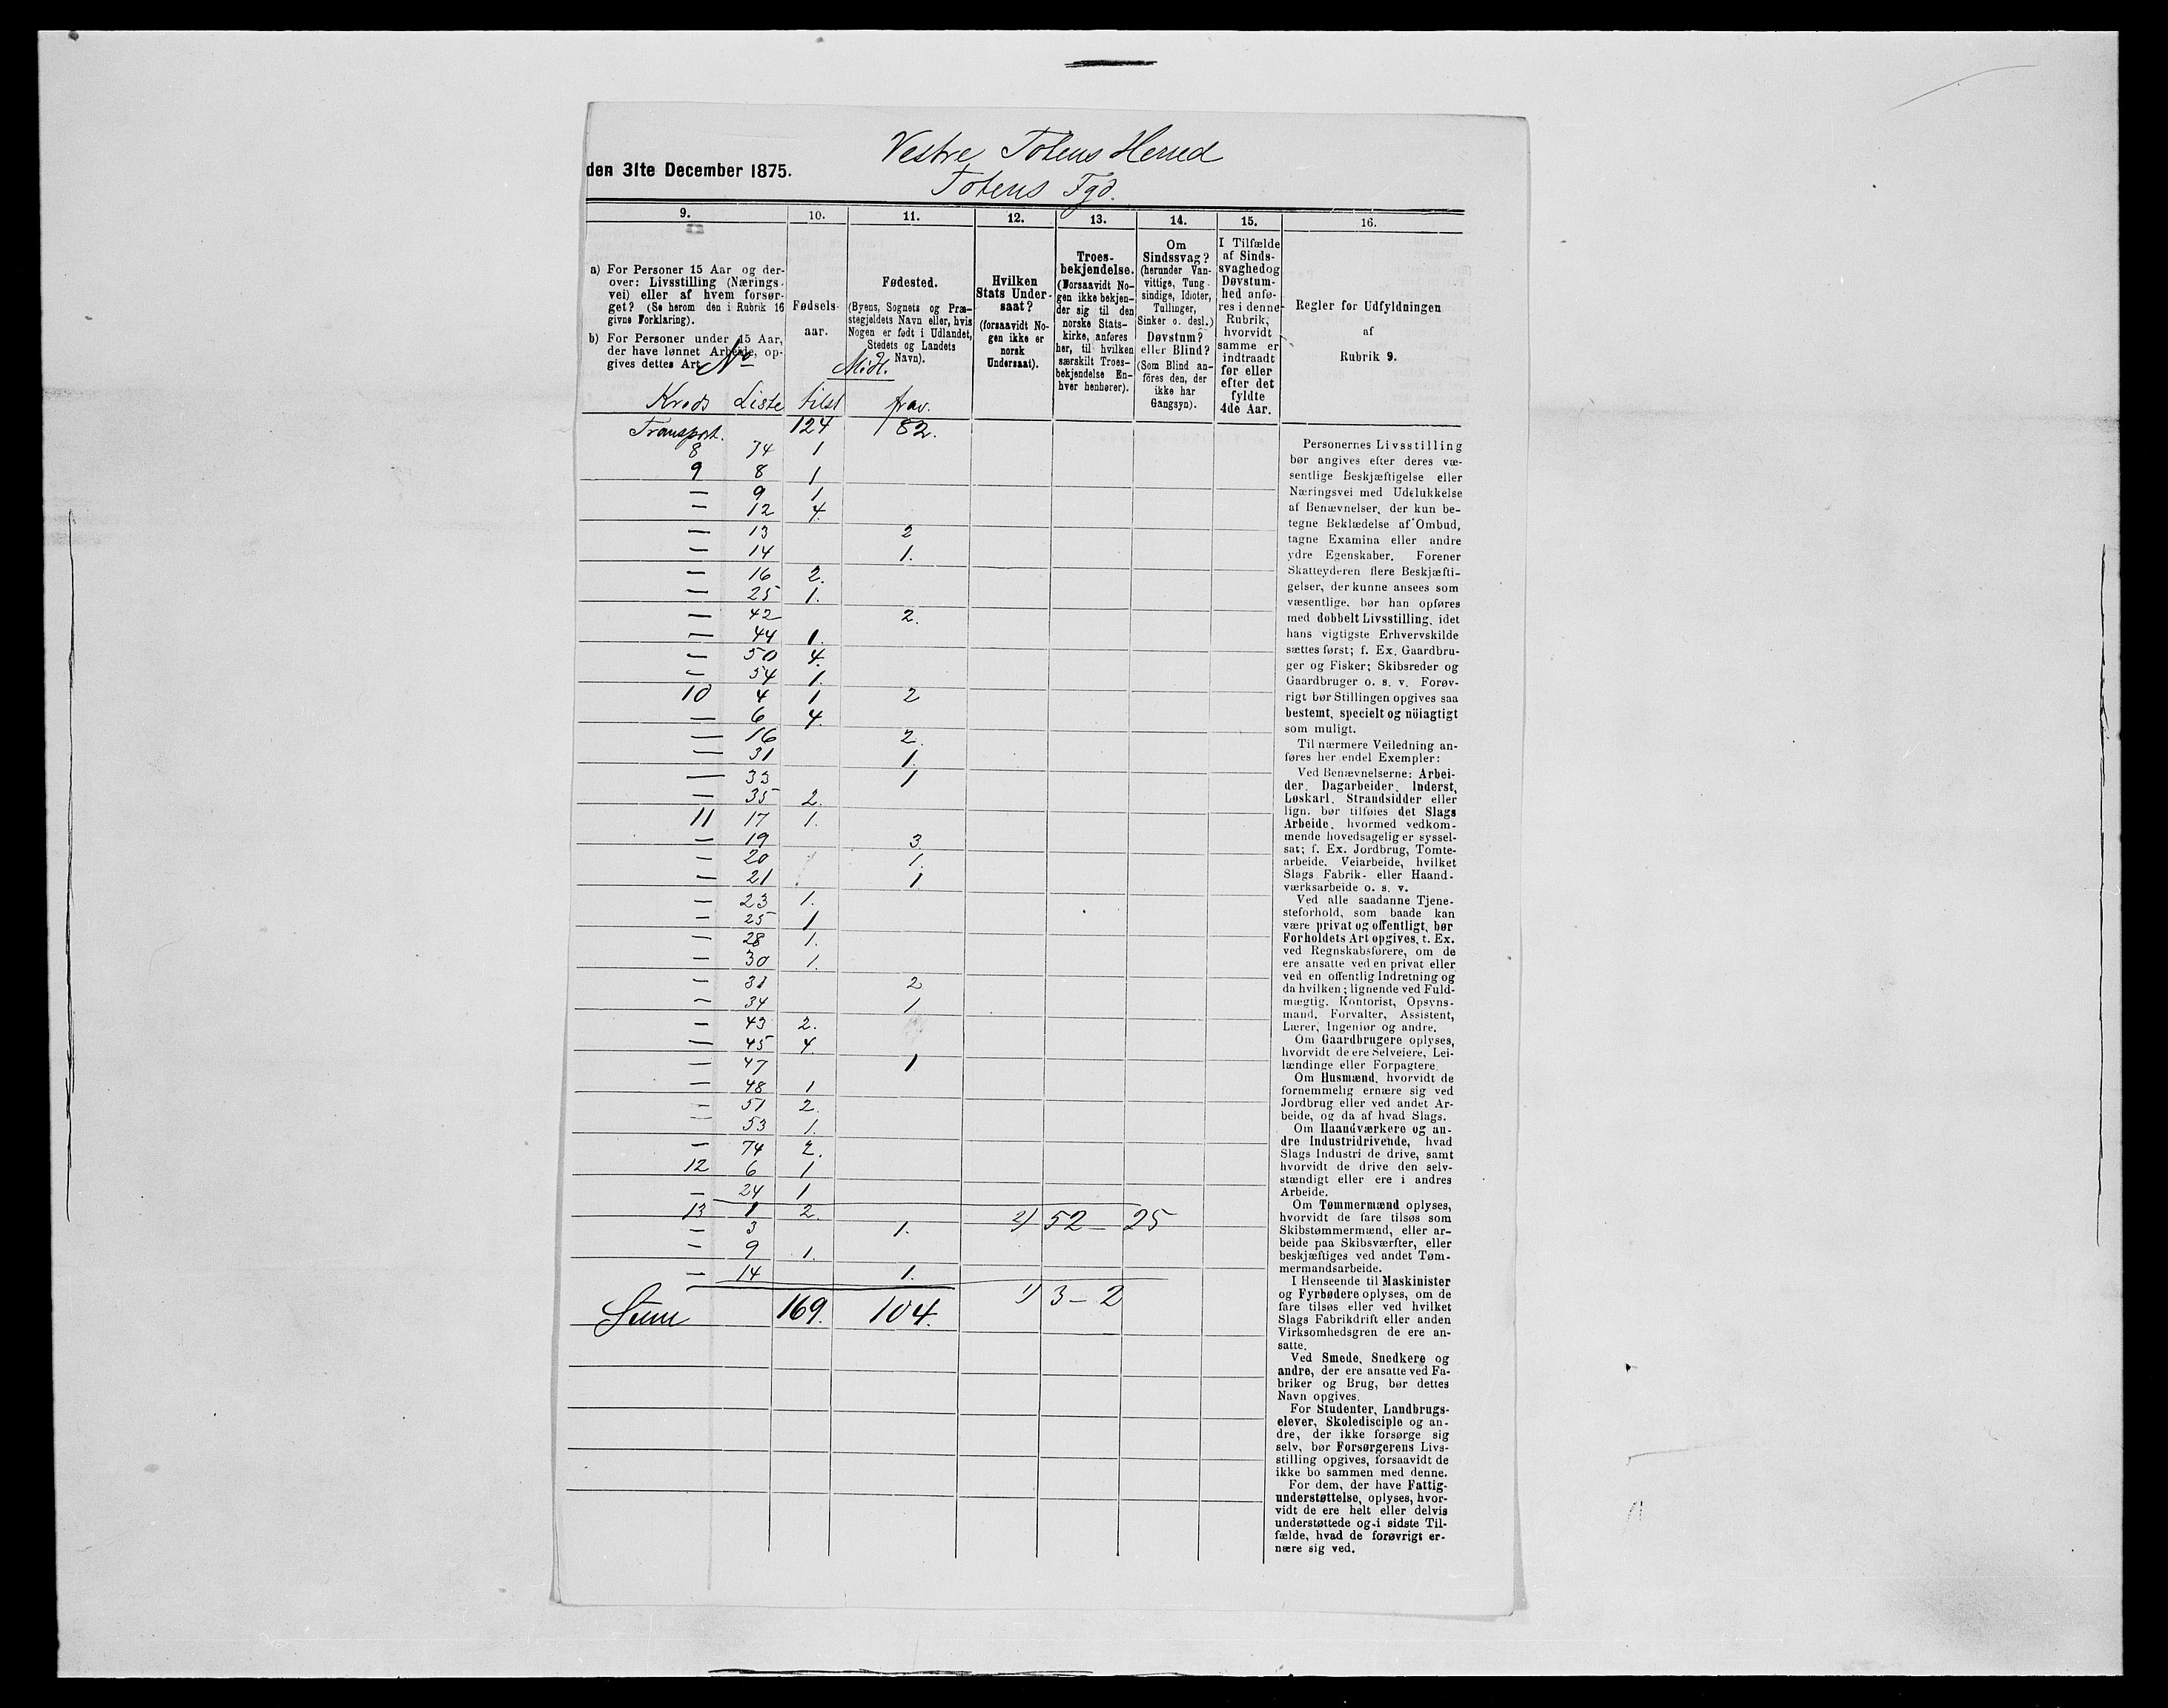 Vestre Totens Herred
den 31te December 1875.
Totens Fgd.
9. 10. 11. 12. 13. 14. 15. 16.
a) For Personer 15 Aar og der-
over: Livsstilling (Nærings-
vei) eller af hvem forsør-
get? (Se herom den i Rubrik 16
givne Forklaring).
b) For Personer under 15 Aar,
der have lønnet Arbeide, op-
gives dettes Art.
Fødsels-
aar.
Fødested.
(Byens, Sognets og Præ-
stegjeldets Navn eller, hvis
Nogen er født i Udlandet,
Stedets og Landets
Navn).
Hvilken
Stats Under-
saat?
(forsaavidt No-
gen ikke er
norsk
Undersaat).
Troes-
bekjendelse.
(Forsaavidt No-
gen ikke bekjen-
der sig til den
norske Stats-
kirke, anføres
her, til hvilken
særskilt Troes-
bekjendelse En-
hver henhører).
Om
Sindssvag?
(herunder Van-
vittige, Tung-
sindige, Idioter,
Tullinger,
Sinker o. desl.)
Døvstum?
eller Blind?
(Som Blind an-
føres den, der
ikke har
Gangsyn).
I Tilfælde
af Sinds-
svaghed og
Døvstum-
hed anfø-
res i denne
Rubrik,
hvorvidt
samme er
indtraadt
før eller
efter det
fyldte
4de Aar.
Regler for Udfyldningen
af
Rubrik 9.
No Midl.
Kreds Liste tilst frav.
Transport. 124 82.
8 74 1
9 8 1
— 9 1
— 12 4.
— 13 2
— 14 1.
— 16 2.
— 25 1.
— 42 2.
— 44 1.
— 50 4.
— 54 1.
10 4 1 2
— 6 4.
— 16 2.
— 31 1.
— 33 1
— 35 2.
11 17 1.
— 19 3.
— 20 1.
— 21 1
— 23 1.
— 25 1
— 28 1.
— 30 1.
— 31 2
— 34 1
— 43 2.
— 45 4.
— 47 1
— 48 1
— 51 2.
— 53 1.
— 74 2.
12 6 1
— 24 1
13 1 2.
— 3 1. 2) 52 — 25
— 9 1.
— 14 1.
1) 3 — 2
Sum 169. 104.
Personernes Livsstilling
bør angives efter deres væ-
sentlige Beskjæftigelse eller
Næringsvei med Udelukkelse
af Benævnelser, der kun be-
tegne Beklædelse af Ombud,
tagne Examina eller andre
ydre Egenskaber. Forener
Skatteyderen flere Beskjæfti-
gelser, der kunne ansees som
væsentlige, bør han opføres
med dobbelt Livsstilling, idet
hans vigtigste Erhvervskilde
sættes først; f. Ex. Gaardbru-
ger og Fisker; Skibsreder og
Gaardbruger o. s. v. Forøv-
rigt bør Stillingen opgives saa
bestemt, specielt og nöiagtigt
som muligt.
Til nærmere Veiledning an-
føres her endel Exempler:
Ved Benævnelserne: Arbei-
der, Dagarbeider, Inderst,
Løskarl, Strandsidder eller
lign. bør tilføies det Slags
Arbeide, hvormed vedkom-
mende hovedsagelig er syssel-
sat; f. Ex. Jordbrug, Tomte-
arbeide, Veiarbeide, hvilket
Slags Fabrik- eller Haand-
værksarbeide o. s. v.
Ved alle saadanne Tjene-
steforhold, som baade kan
være privat og offentligt, bør
Forholdets Art opgives, t. Ex.
ved Regnskabsførere, om de
ere ansatte ved en privat eller
ved en offentlig Indretning og
da hvilken; lignende ved Fuld-
mægtig, Kontorist, Opsyns-
mand, Forvalter, Assistent,
Lærer, Ingeniør og andre.
Om Gaardbrugere oplyses,
hvorvidt de ere Selveiere, Lei-
lændinge eller Forpagtere.
Om Husmænd, hvorvidt de
fornemmelig ernære sig ved
Jordbrug eller ved andet Ar-
beide, og da af hvad Slags.
Om Haandværkere og an-
dre Industridrivende, hvad
Slags Industri de drive, samt
hvorvidt de drive den selv-
stændigt eller ere i andres
Arbeide.
Om Tømmermænd oplyses,
hvorvidt de fare tilsøs som
Skibstømmermænd, eller ar-
beide paa Skibsværfter, eller
beskjæftiges ved andet Tøm-
mermandsarbeide.
I Henseende til Maskinister
og Fyrbødere oplyses, om de
fare tilsøs eller ved hvilket
Slags Fabrikdrift eller anden
Virksomhedsgren de ere an-
satte.
Ved Smede, Snedkere og
andre, der ere ansatte ved Fa-
briker og Brug, bør dettes
Navn opgives.
For Studenter, Landbrugs-
elever, Skoledisciple og an-
dre, der ikke forsørge sig
selv, bør Forsørgerens Livs-
stilling opgives, forsaavidt de
ikke bo sammen med denne.
For dem, der have Fattig-
understøttelse, oplyses, hvor-
vidt de ere helt eller delvis
understøttede og i sidste Til-
fælde, hvad de forøvrigt er-
nære sig ved.